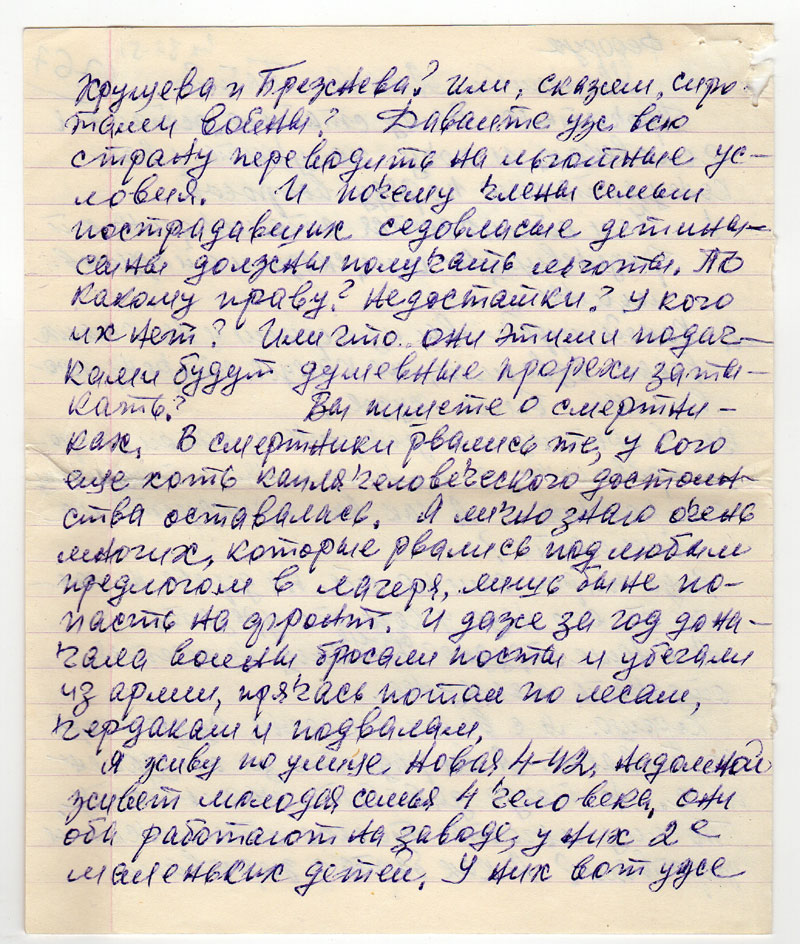 Хрущева и Брежнева? Или, скажем, сиро-
тами войны? Давайте уж всю
страну переводить на льготные ус-
ловия. И почему члены семьи
пострадавших седовласые детины-
сыны должны получать льготы. По
какому праву? Недостатки? У кого
их нет? Или что они этими подач-
ками будут душевные прорехи заты-
кать? Вы пишете о смертни-
ках. В смертники рвались те, у кого
еще хоть капля человеческого достоин-
ства оставалась. Я лично знаю очень
многих, которые рвались под любым
предлогом в лагеря, лишь бы не по-
пасть на фронт. И даже за год до на-
чала войны бросали посты и убегали
из армии, прячась потом по лесам,
чердакам и подвалам.
Я живу по улице Новая 4-42. надомной
живет молодая семья 4 человека, они
оба работают на заводе, у них 2е
маленьких детей. У них вот уже